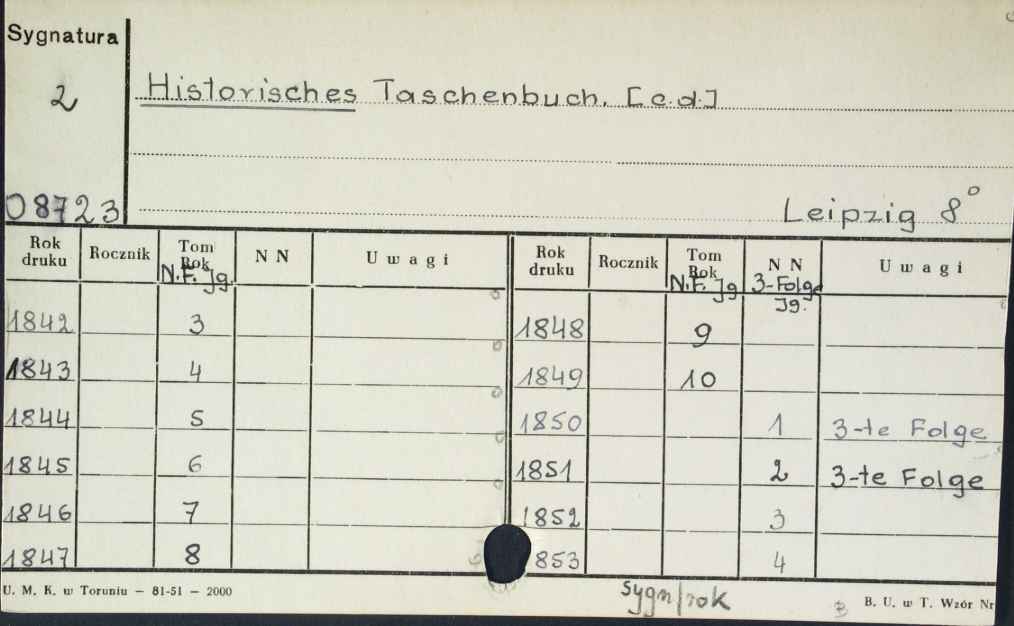 Sygnatura
2
Historisches Taschenbuch. [c.d.]
08723
Leipzig 8°
Rok druku Rocznik Tom Rok N.F. Jg. N N Uwagi Rok druku Rocznik Tom Rok N.F. Jg N N 3-Folge Jg. Uwagi
1842 3 1848 9
1843 4 1849 10
1844 5 1850 1 3-te Folge
1845 6 1851 2 3-te Folge
1846 7 1852 3
1847 8 853 4
U. M. K. w Toruniu — 81-51 — 2000
Sygn/rok
B. U. w T. Wzór Nr